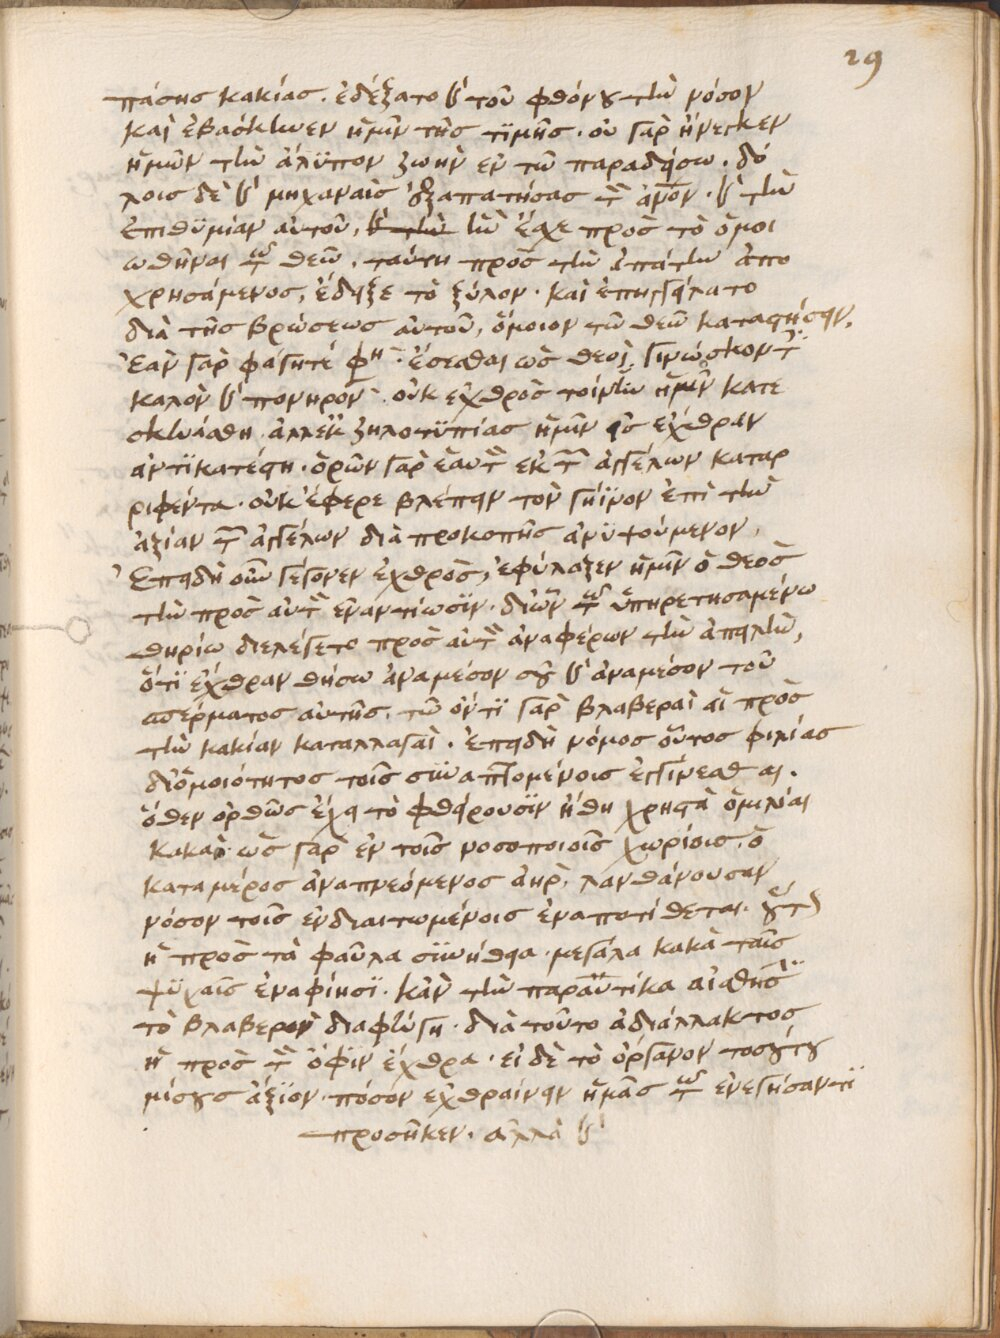 29
πάσης κακίας. ἐδέξατο καὶ τοῦ φθόνου τὴν νόσον
καὶ ἐβάσκηνεν ἡμῖν τῆς τϊμῆς. οὐ γὰρ ἤνεγκεν
ἡμῶν τὴν ἀλϋπον ζωὴν ἐν τῶ παραδείσω. δό
λοις δὲ καὶ μηχαναῖς ἐξαπατήσας τὸν ἀνον. καὶ τὴν
ἐπιθϋμίαν αὐτοῦ, καὶ τὴν ἣν ἔιχε πρὸς τὸ ὁμοι
ωθῆναι τῶ θεῶ. ταύτη πρὸς τὴν ἀπάτην ἀπο
χρησάμενος, ἔδειξε τὸ ξύλον. καὶ ἐπηγγείλατο
διὰ τῆς βρώσεως αὐτοῦ, ὅμοιον τῶ θεῶ καταστήσειν.
Ἐὰν γὰρ φάγητέ φη. ἔσεσθαι ὡς θεοὶ, γινώσκοντες
καλὸν καὶ πονηρόν. οὐκ ἐχθρὸς τοίνυν ἡμῶν κατε
σκευάσθη. ἀλλ' ἐκ ζηλοτϋπίας ἡμῖν εἰς ἔχθραν
ἀντϊκατέστη. ὁρῶν γὰρ ἑαυτὸν ἐκ τῶν ἀγγέλων καταρ
ριφέντα. οὐκ ἔφερε βλέπειν τὸν γήϊνον ἐπὶ τὴν
ἀξίαν τῶν ἀγγέλων διὰ προκοπῆς ἀνϋψούμενον.
Ἐπειδὴ οὖν γέγονεν ἐχθρὸς, ἐφύλαξεν ἡμῖν ὁ θεὸς
τὴν πρὸς αὐτὸν ἐναντίωσϊν. δι' ὧν τῶ ὑπηρετησαμένω
θηρίω διελέγετο πρὸς αὐτὸν ἀναφέρων τὴν ἀπειλὴν,
ὅτϊ ἔχθραν θήσω ἀναμέσον σου καὶ ἀναμέσον τοῦ
σπέρματος αὐτῆς. τῶ ὄντϊ γὰρ βλαβεραὶ αἱ πρὸς
τὴν κακίαν καταλλαγαὶ. ἐπειδὴ νόμος οὗτος φιλίας
δι' ὁμοιότητος τοῖς συναπτομένοις ἐγγίνεσθαι.
ὅθεν ὀρθῶς ἔχει τὸ φθείρουσϊν ἤθη χρηστὰ ὁμιλίαι
κακαὶ. ὡς γὰρ ἐν τοῖς νοσοποιοῖς χωρίοις, ὁ
καταμέρος ἀναπνεόμενος ἀὴρ, λανθάνουσαν
νόσον τοῖς ἐνδιαιτωμένοις ἐναποτίθεται. οὕτως
ἡ πρὸς τὰ φαῦλα συνήθεια. μεγάλα κακὰ ταῖς
ψϋχαῖς ἐναφίησϊ. κἂν τὴν παραυτίκα αἴσθησιν
τὸ βλαβερὸν διαφεύγη. διὰ τοῦτο ἀδιάλλακτος
ἡ πρὸς τὸν ὄφϊν ἔχθρα. εἰ δὲ τὸ ὄργανον τοσούτου
μίσους ἄξϊον. πόσον ἐχθραίνειν ἡμᾶς τῶ ἐνεργήσαντϊ
προσῆκεν. ἀλλὰ καὶ